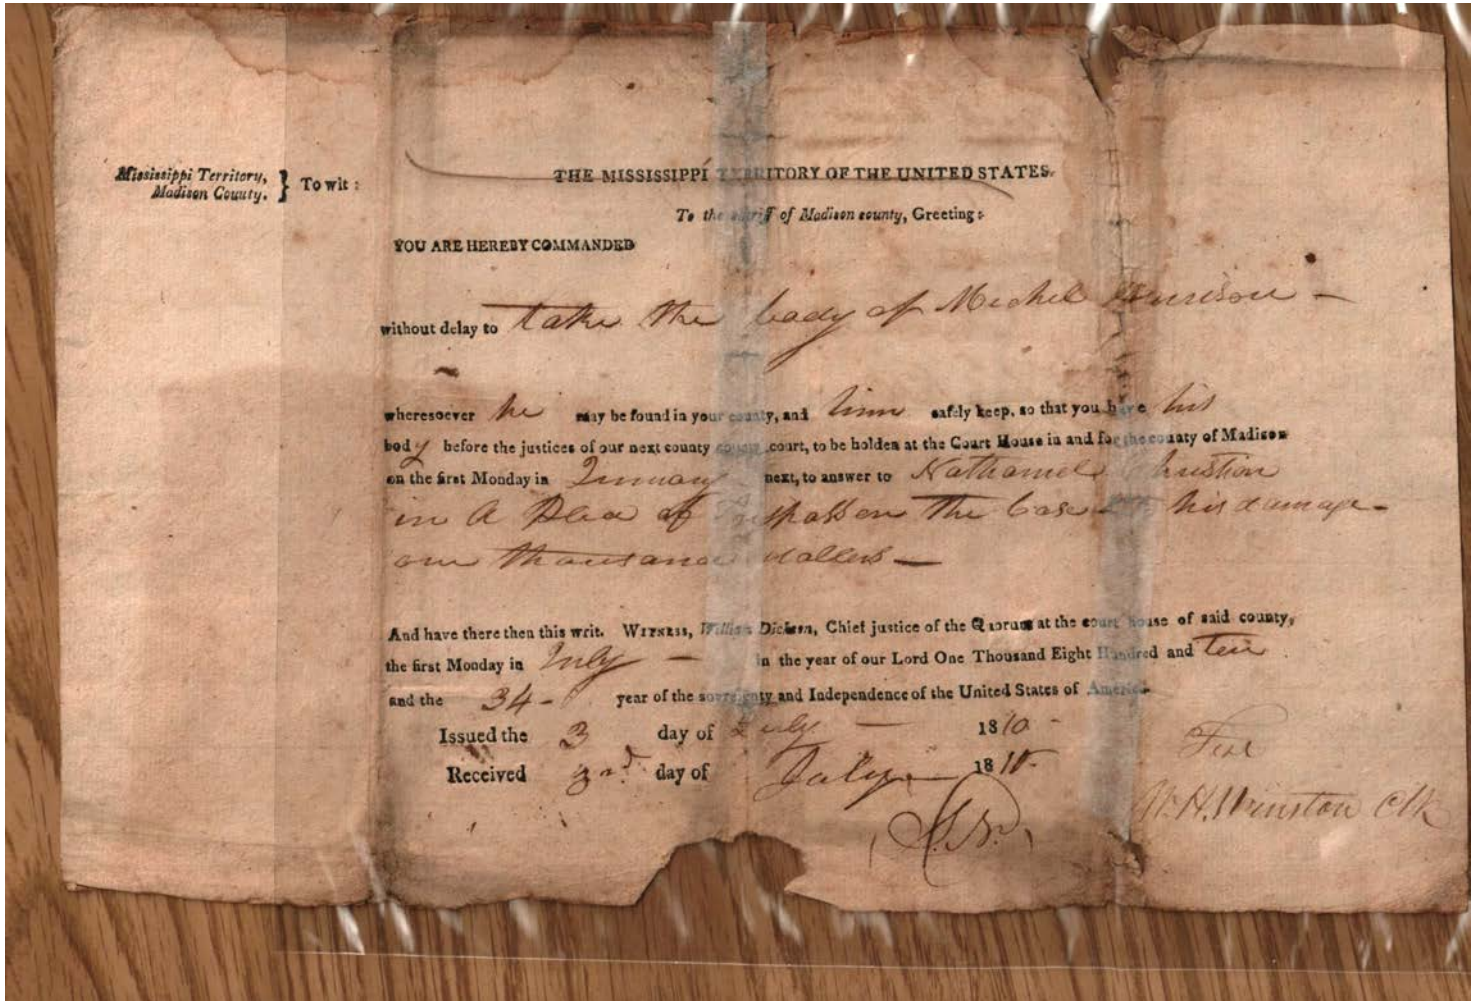 Mississippi Territory,
Madison County. } To wit :
THE MISSISSIPPI TERRITORY OF THE UNITED STATES.
To the sheriff of Madison county, Greeting:
YOU ARE HEREBY COMMANDED
without delay to take the body of Michel
wheresoever he may be found in your county, and him safely keep, so that you have his
body before the justices of our next county court, to be holden at the Court House in and for the county of Madison
on the first Monday in next, to answer to Nathaniel Christian
in A Plea of Trespass on The Case his damage
one thousand dollers
And have there then this writ. WITNESS, William Dickson, Chief justice of the Quorum at the court house of said county,
the first Monday in July in the year of our Lord One Thousand Eight Hundred and ten
and the 34 year of the sovereignty and Independence of the United States of America.
Issued the 3 day of July 1810
Received 3rd day of July 1810
S.N.
W.H. Winston Clk